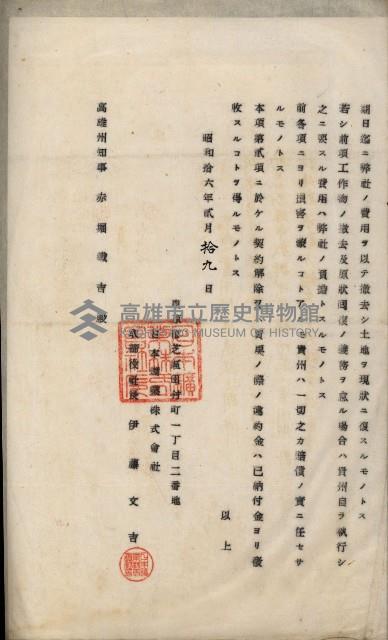 期日迄ニ弊社ノ費用ヲ以テ撤去シ土地ヲ現狀ニ復スルモノトス
若シ前項工作物ノ撤去及原狀回復ノ義務ヲ怠ル場合ハ貴州自ラ執行シ
之ニ要スル費用ハ弊社ノ負擔トスルモノトス
前各項ニヨリ損害ヲ蒙ルコトアルモ貴州ハ一切之カ賠償ノ責ニ任セサ
ルモノトス
本項第貳項ニ於ケル契約解除
ノ際ノ違約金ハ已納付金ヨリ徵
收スルコトヲ得ルモノトス
以上
昭和拾六年貳月拾九日
芝區田村町一丁目二番地
日本
株式會社
伊藤文吉
高雄州知事 赤堀鐵吉殿
高雄市立歷史博物館
KAOHSIUNG MUSEUM OF HISTORY